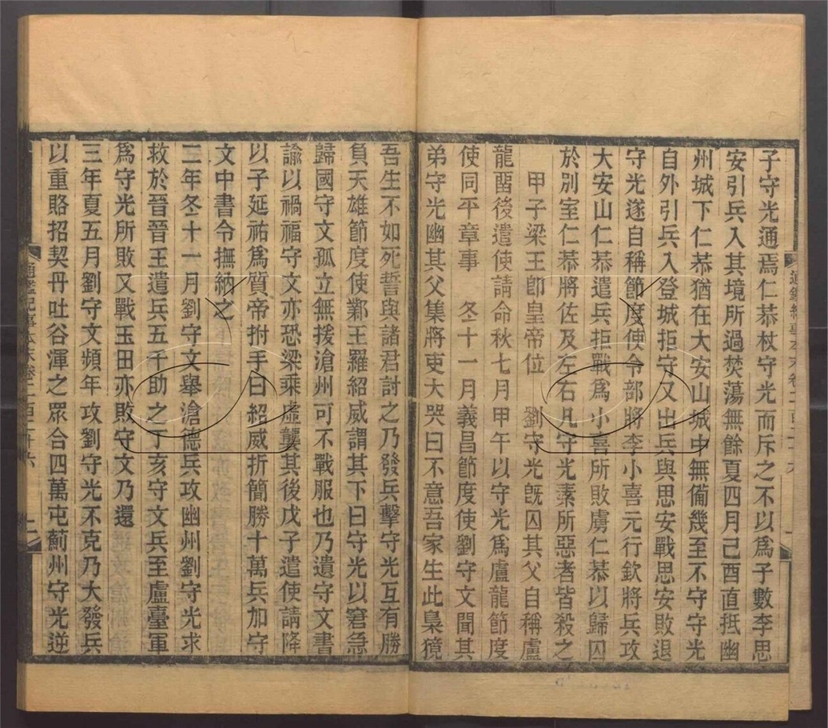 子守光通焉仁恭杖守光而斥之不以爲子數李思
安引兵入其境所過焚蕩無餘夏四月己酉直抵幽
州城下仁恭猶在大安山城中無備幾至不守守光
自外引兵入登城拒守又出兵與思安戰思安敗退
守光遂自稱節度使令部將李小喜元行欽將兵攻
大安山仁恭遣兵拒戰爲小喜所敗虜仁恭以歸囚
於別室仁恭將佐及左右凡守光素所惡者皆殺之
甲子梁王卽皇帝位　劉守光旣囚其父自稱盧
龍畱後遣使請命秋七月甲午以守光爲盧龍節度
使同平章事　冬十一月義昌節度使劉守文聞其
弟守光幽其父集將吏大哭曰不意吾家生此梟獍
吾生不如死誓與諸君討之乃發兵擊守光互有勝
負天雄節度使鄴王羅紹威謂其下曰守光以窘急
歸國守文孤立無援滄州可不戰服也乃遺守文書
諭以禍福守文亦恐梁乘虛襲其後戊子遣使請降
以子延祐爲質帝拊手曰紹威折簡勝十萬兵加守
文中書令撫納之
二年冬十一月劉守文舉滄德兵攻幽州劉守光求
救於晉晉王遣兵五千助之丁亥守文兵至盧臺軍
爲守光所敗又戰玉田亦敗守文乃還
三年夏五月劉守文頻年攻劉守光不克乃大發兵
以重賂招契丹吐谷渾之眾合四萬屯薊州守光逆